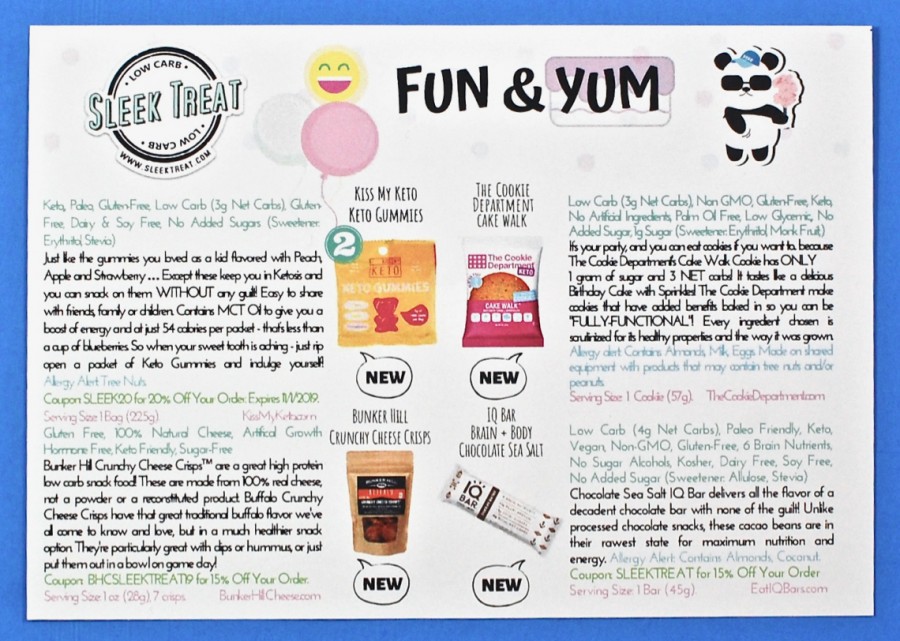 LOW CARB
SLEEK TREAT
LOW CARB
WWW.SLEEKTREAT.COM
FUN & YUM
Keto, Paleo, Gluten-Free, Low Carb (3g Net Carbs), Gluten-
Free, Dairy & Soy Free, No Added Sugars (Sweetener:
Erythritol, Stevia)
Just like the gummies you loved as a kid flavored with Peach,
Apple and Strawberry ... Except these keep you in Ketosis and
you can snack on them WITHOUT any guilt! Easy to share
with friends, family or children. Contains MCT Oil to give you a
boost of energy and at just 54 calories per packet - that's less than
a cup of blueberries. So when your sweet tooth is aching - just rip
open a packet of Keto Gummies and indulge yourself!
Allergy Alert Tree Nuts
Coupon: SLEEK20 for 20% Off Your Order. Expires 11/1/2019.
Serving Size 1 Bag (22.5g). KissMyKeto.com
Gluten Free, 100% Natural Cheese, Artificial Growth
Hormone Free, Keto Friendly, Sugar-Free
Bunker Hill Crunchy Cheese Crisps™ are a great high protein
low carb snack food! These are made from 100% real cheese,
not a powder or a reconstituted product. Buffalo Crunchy
Cheese Crisps have that great traditional buffalo flavor we've
all come to know and love, but in a much healthier snack
option. They're particularly great with dips or hummus, or just
put them out in a bowl on game day!
Coupon: BHCSLEEKTREAT19 for 15% Off Your Order.
Serving Size: 1 oz (28g), 7 crisps. BunkerHillCheese.com
KISS MY KETO
KETO GUMMIES
2
KETO
KETO GUMMIES
NEW
BUNKER HILL
CRUNCHY CHEESE CRISPS
BUNKER HILL
NEW
THE COOKIE
DEPARTMENT
CAKE WALK
The Cookie
Department
KETO
CAKE WALK
NEW
IQ BAR
BRAIN + BODY
CHOCOLATE SEA SALT
IQ
BAR
NEW
Low Carb (3g Net Carbs), Non GMO, Gluten-Free, Keto,
No Artificial Ingredients, Palm Oil Free, Low Glycemic, No
Added Sugar, 1g Sugar (Sweetener: Erythritol, Monk Fruit)
It's your party, and you can eat cookies if you want to. because
The Cookie Department's Cake Walk Cookie has ONLY
1 gram of sugar and 3 NET carbs! It tastes like a delicious
Birthday Cake with Sprinkles! The Cookie Department make
cookies that have added benefits baked in so you can be
"FULLY-FUNCTIONAL"! Every ingredient chosen is
scrutinized for its healthy properties and the way it was grown.
Allergy alert: Contains Almonds, Milk, Eggs. Made on shared
equipment with products that may contain tree nuts and/or
peanuts.
Serving Size: 1 Cookie (57g). TheCookieDepartment.com
Low Carb (4g Net Carbs), Paleo Friendly, Keto,
Vegan, Non-GMO, Gluten-Free, 6 Brain Nutrients,
No Sugar Alcohols, Kosher, Dairy Free, Soy Free,
No Added Sugar (Sweetener: Allulose, Stevia)
Chocolate Sea Salt IQ Bar delivers all the flavor of a
decadent chocolate bar with none of the guilt! Unlike
processed chocolate snacks, these cacao beans are in
their rawest state for maximum nutrition and
energy. Allergy Alert: Contains Almonds, Coconut.
Coupon: SLEEKTREAT for 15% Off Your Order
Serving Size: 1 Bar (45g). EatIQBars.com